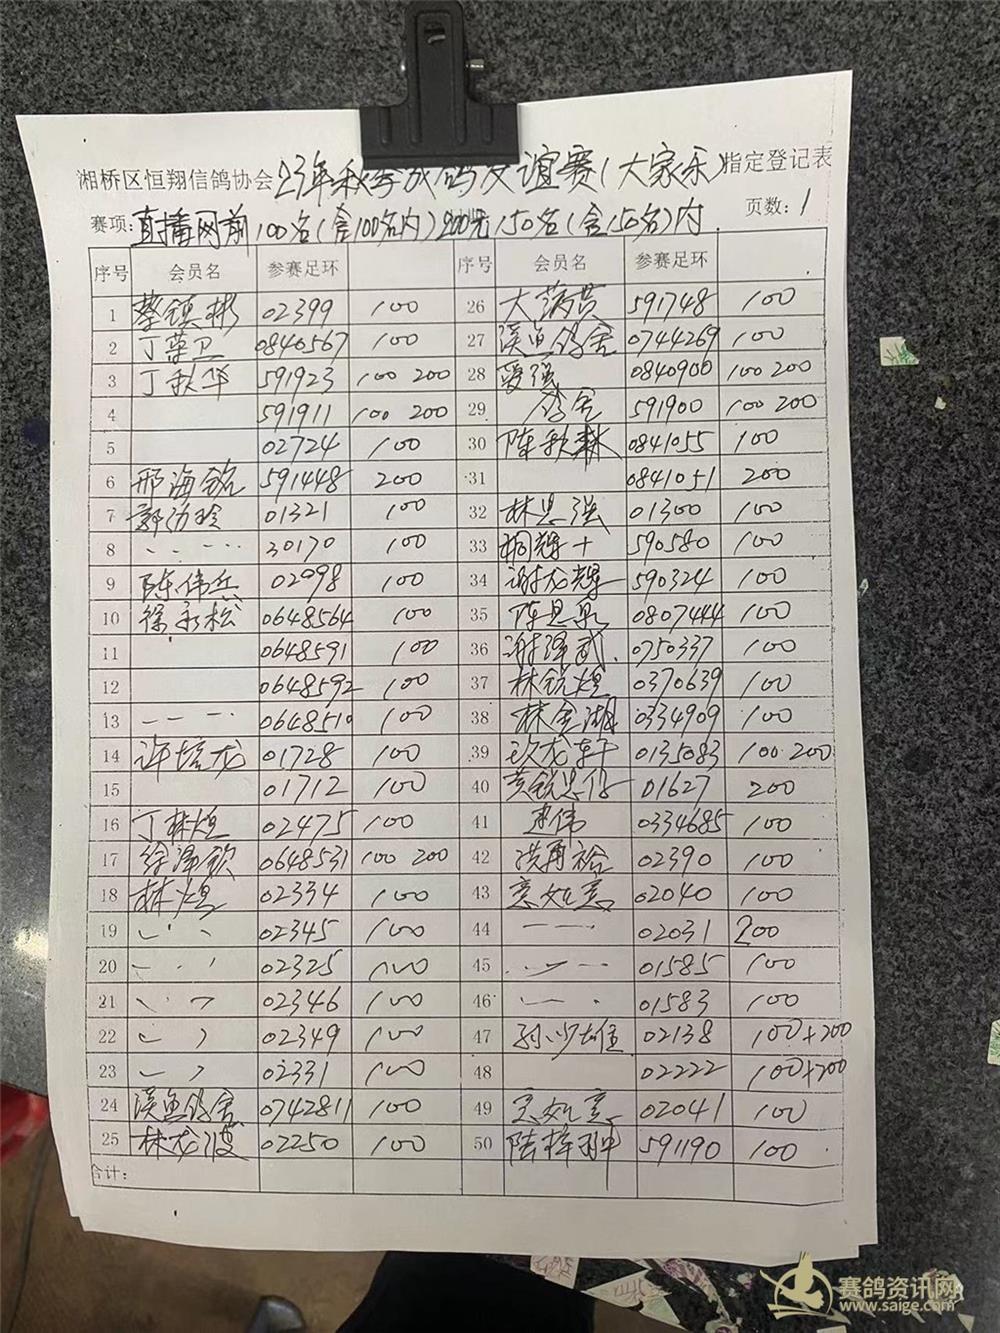 湘桥区恒翔信鸽协会 23年秋季成鸽友谊赛(大家乐)指定登记表
赛项: 直播网前100名(含100名内) 200元 150名(含150名)内 页数: 1
序号 会员名 参赛足环 序号 会员名 参赛足环
1 蔡镇彬 02399 100 26 591748 100
2 丁荣卫 0840567 100 27 溪鱼鸽舍 0744269 100
3 丁秋华 591923 100 200 28 爱强 0840900 100 200
4 591911 100 200 29 鸽舍 591900 100 200
5 02724 100 30 陈秋林 0841055 100
6 邢海铭 591448 200 31 0841051 200
7 01321 100 32 林思强 01300 100
8 30170 100 33 590580 100
9 陈伟兵 02998 100 34 谢龙辉 590324 100
10 徐永松 0648564 100 35 0807444 100
11 0648591 100 36 谢泽武 0750337 100
12 0648592 100 37 林锐煌 0370639 100
13 0648510 100 38 林金湖 0334909 100
14 许培龙 01728 100 39 玖龙轩 0135083 100 200
15 01712 100 40 01627 200
16 丁林煌 02475 100 41 建伟 0334685 100
17 徐泽钦 0648531 100 200 42 洪再裕 02390 100
18 林煌 02334 100 43 意如意 02040 100
19 02345 100 44 02031 200
20 02325 100 45 01585 100
21 02346 100 46 01583 100
22 02349 100 47 孙少雄 02138 100+200
23 02331 100 48 02222 100+200
24 溪鱼鸽舍 0742811 100 49 02041 100
25 林龙波 02250 100 50 陆梓翀 591190 100
合计:
赛鸽资讯网
www.saige.com